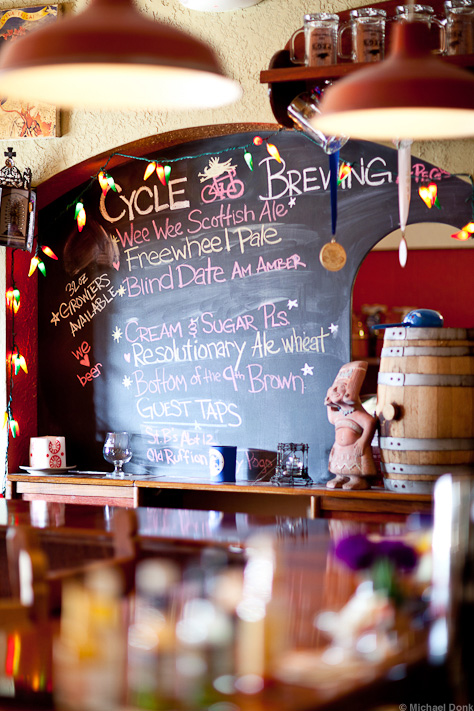 CYCLE BREWING
WEE WEE SCOTTISH ALE
Freewheel Pale
BLIND DATE AM AMBER
32oz GROWLERS AVAILABLE
CREAM & SUGAR PLS.
Resolutionary Ale wheat
BOTTOM OF THE 9th BROWN
we
beer
GUEST TAPS
St. B's Abt 12
Old Ruffian
© Michael Donk